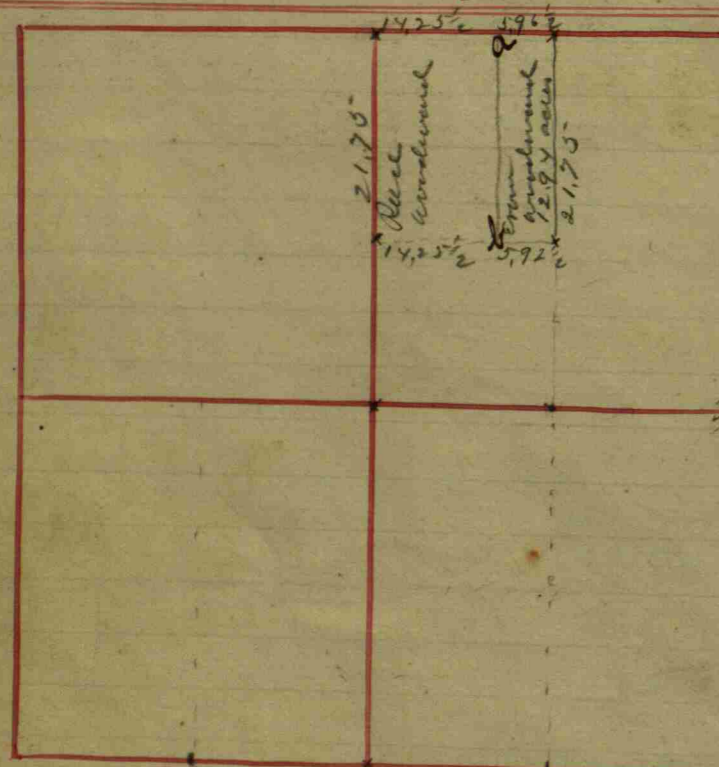 14,25½ 5,96½
a
21,75
woodward
woodward
12.94 acres
21,75
14,25½ 5,92½